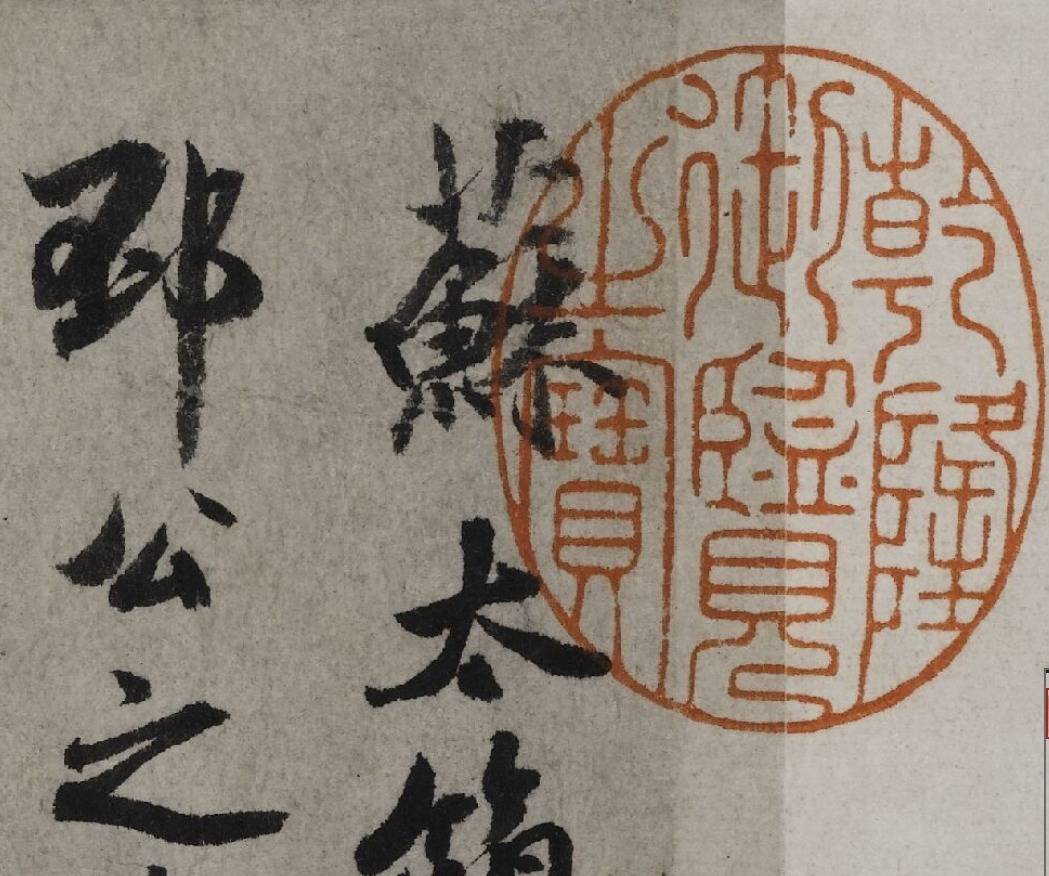 乾隆
御覽
之寶
蘇太簡
邳公之